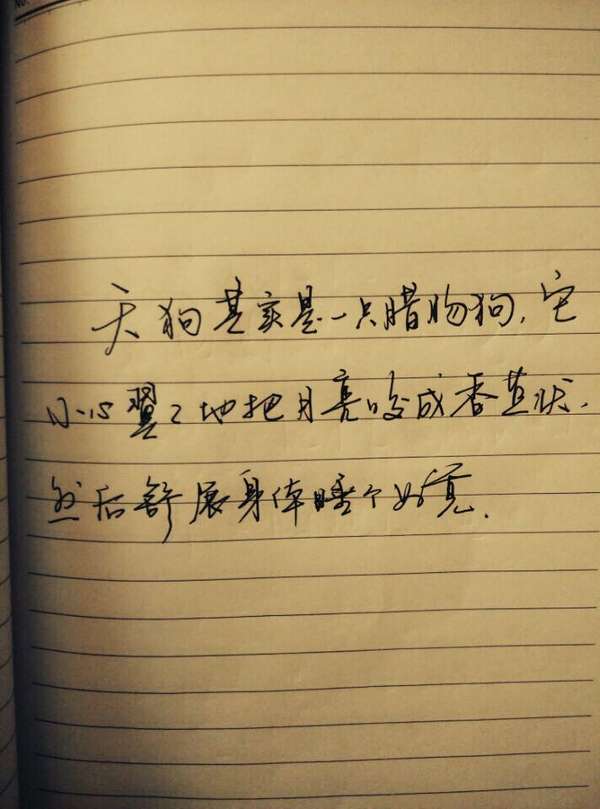 No.
天狗其实是一只腊肠狗，它
小心翼々地把月亮咬成香蕉状，
然后舒展身体睡个好觉．